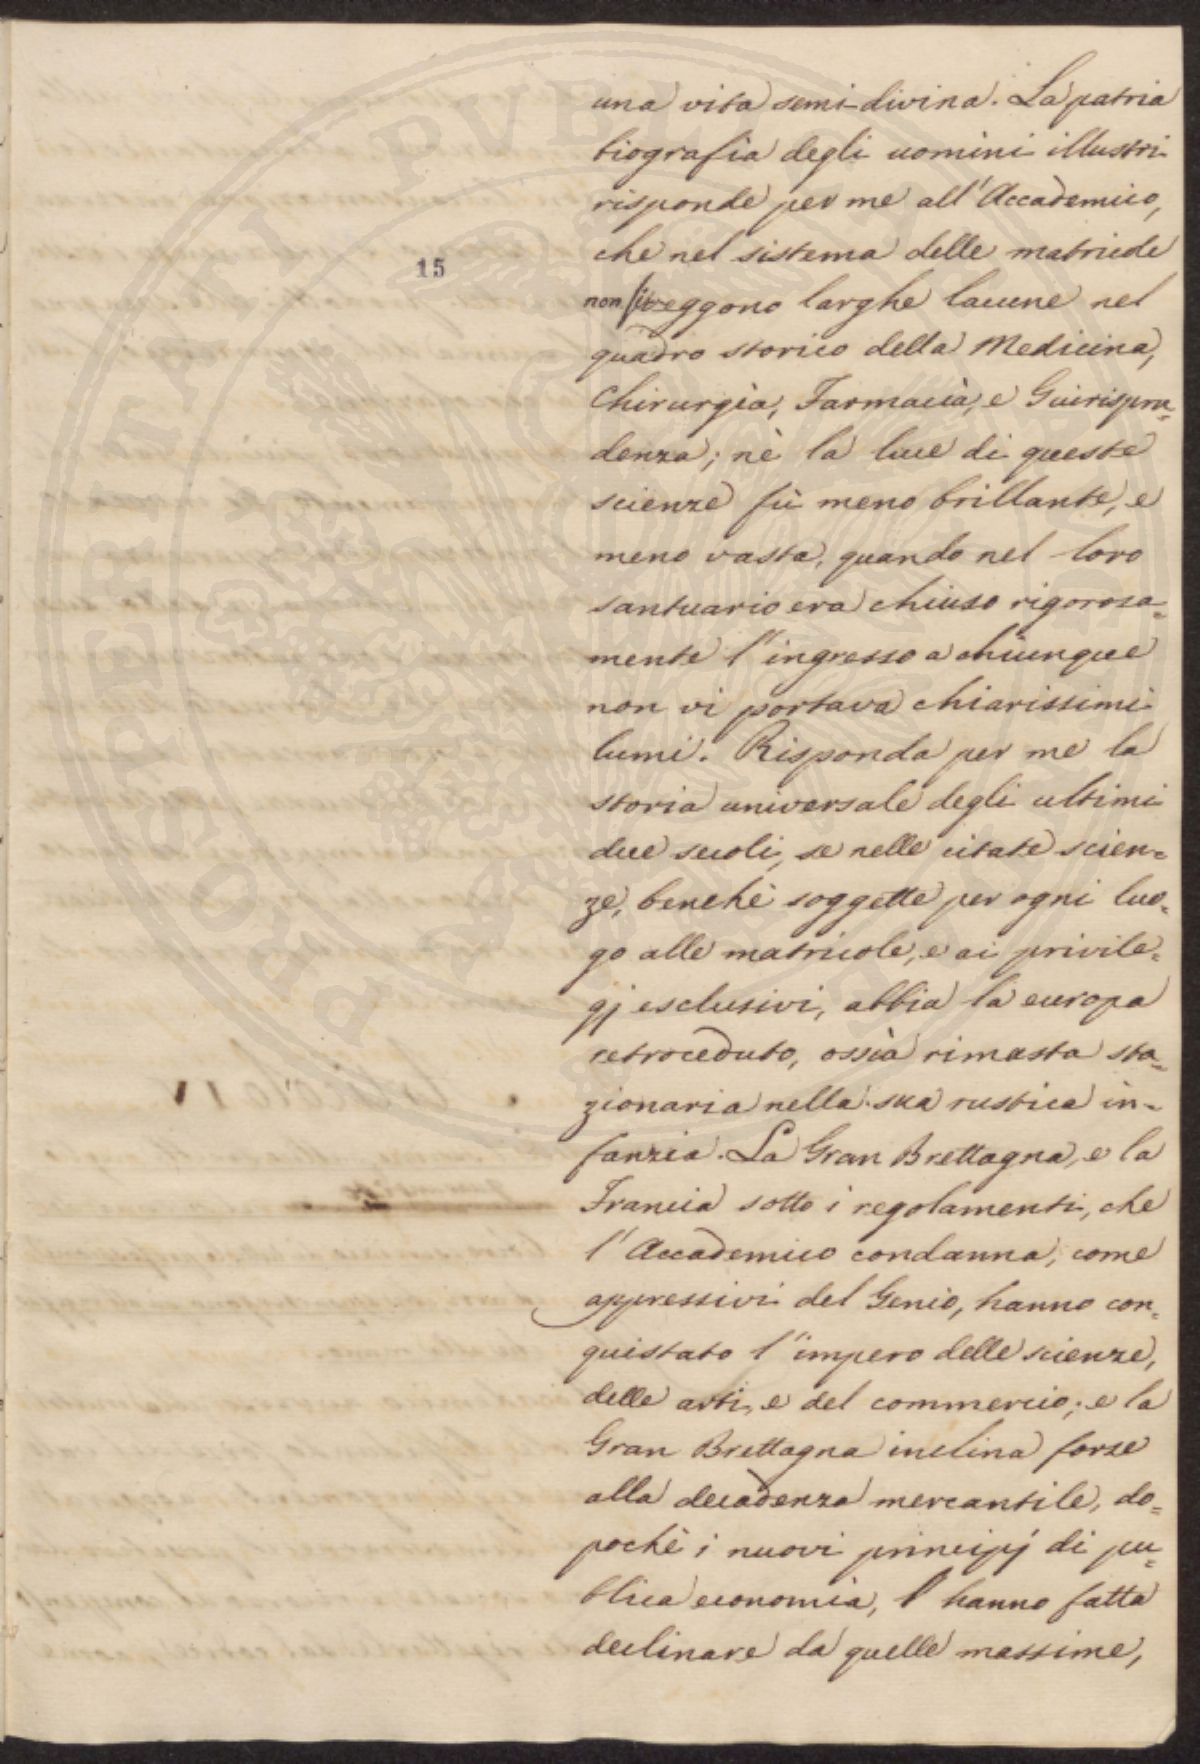 15
una vita semi-divina. La patria
biografia degli uomini illustri
risponde per me all'Accademico,
che nel sistema delle matricole
non si veggono larghe lacune nel
quadro storico della Medicina,
Chirurgia, Farmacia, e Guirispru=
denza; nè la luce di queste
scienze fù meno brillante, e
meno vasta, quando nel loro
santuario era chiuso rigorosa=
mente l'ingresso a chiunque
non vi portava chiarissimi
lumi. Risponda per me la
storia universale degli ultimi
due secoli, se nelle citate scien=
ze, benchè soggette per ogni luo=
go alle matricole, e ai privile=
gj esclusivi, abbia la europa
retroceduto, ossia rimasta sta=
zionaria nella sua rustica in=
fanzia. La Gran Brettagna, e la
Francia sotto i regolamenti, che
l'Accademico condanna, come
oppressivi del Genio, hanno con=
quistato l'impero delle scienze,
delle arti, e del commercio; e la
Gran Brettagna inclina forse
alla decadenza mercantile, do=
pochè i nuovi principj di pu=
blica economia, l'hanno fatta
declinare da quelle massime,